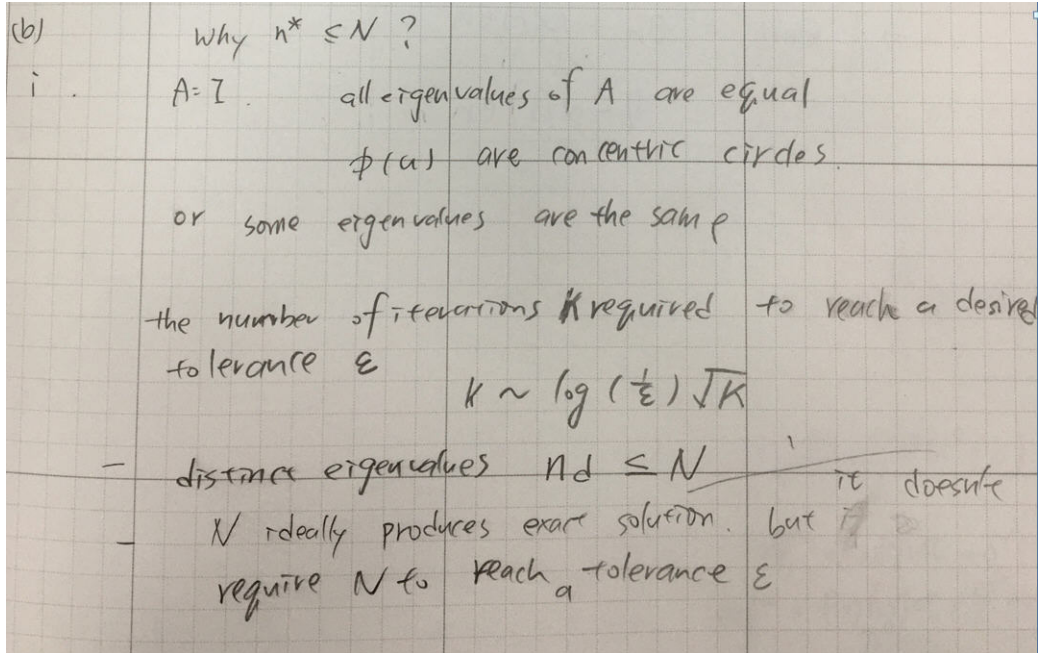 (b) Why n* ≤ N ?
i. A = I. all eigenvalues of A are equal
φ(u) are concentric circles.
or some eigenvalues are the same
the number of iterations K required to reach a desired
tolerance ε
K ~ log (1/ε) √K
- distinct eigenvalues nd ≤ N
- N ideally produces exact solution. but it doesn't
require N to reach a tolerance ε